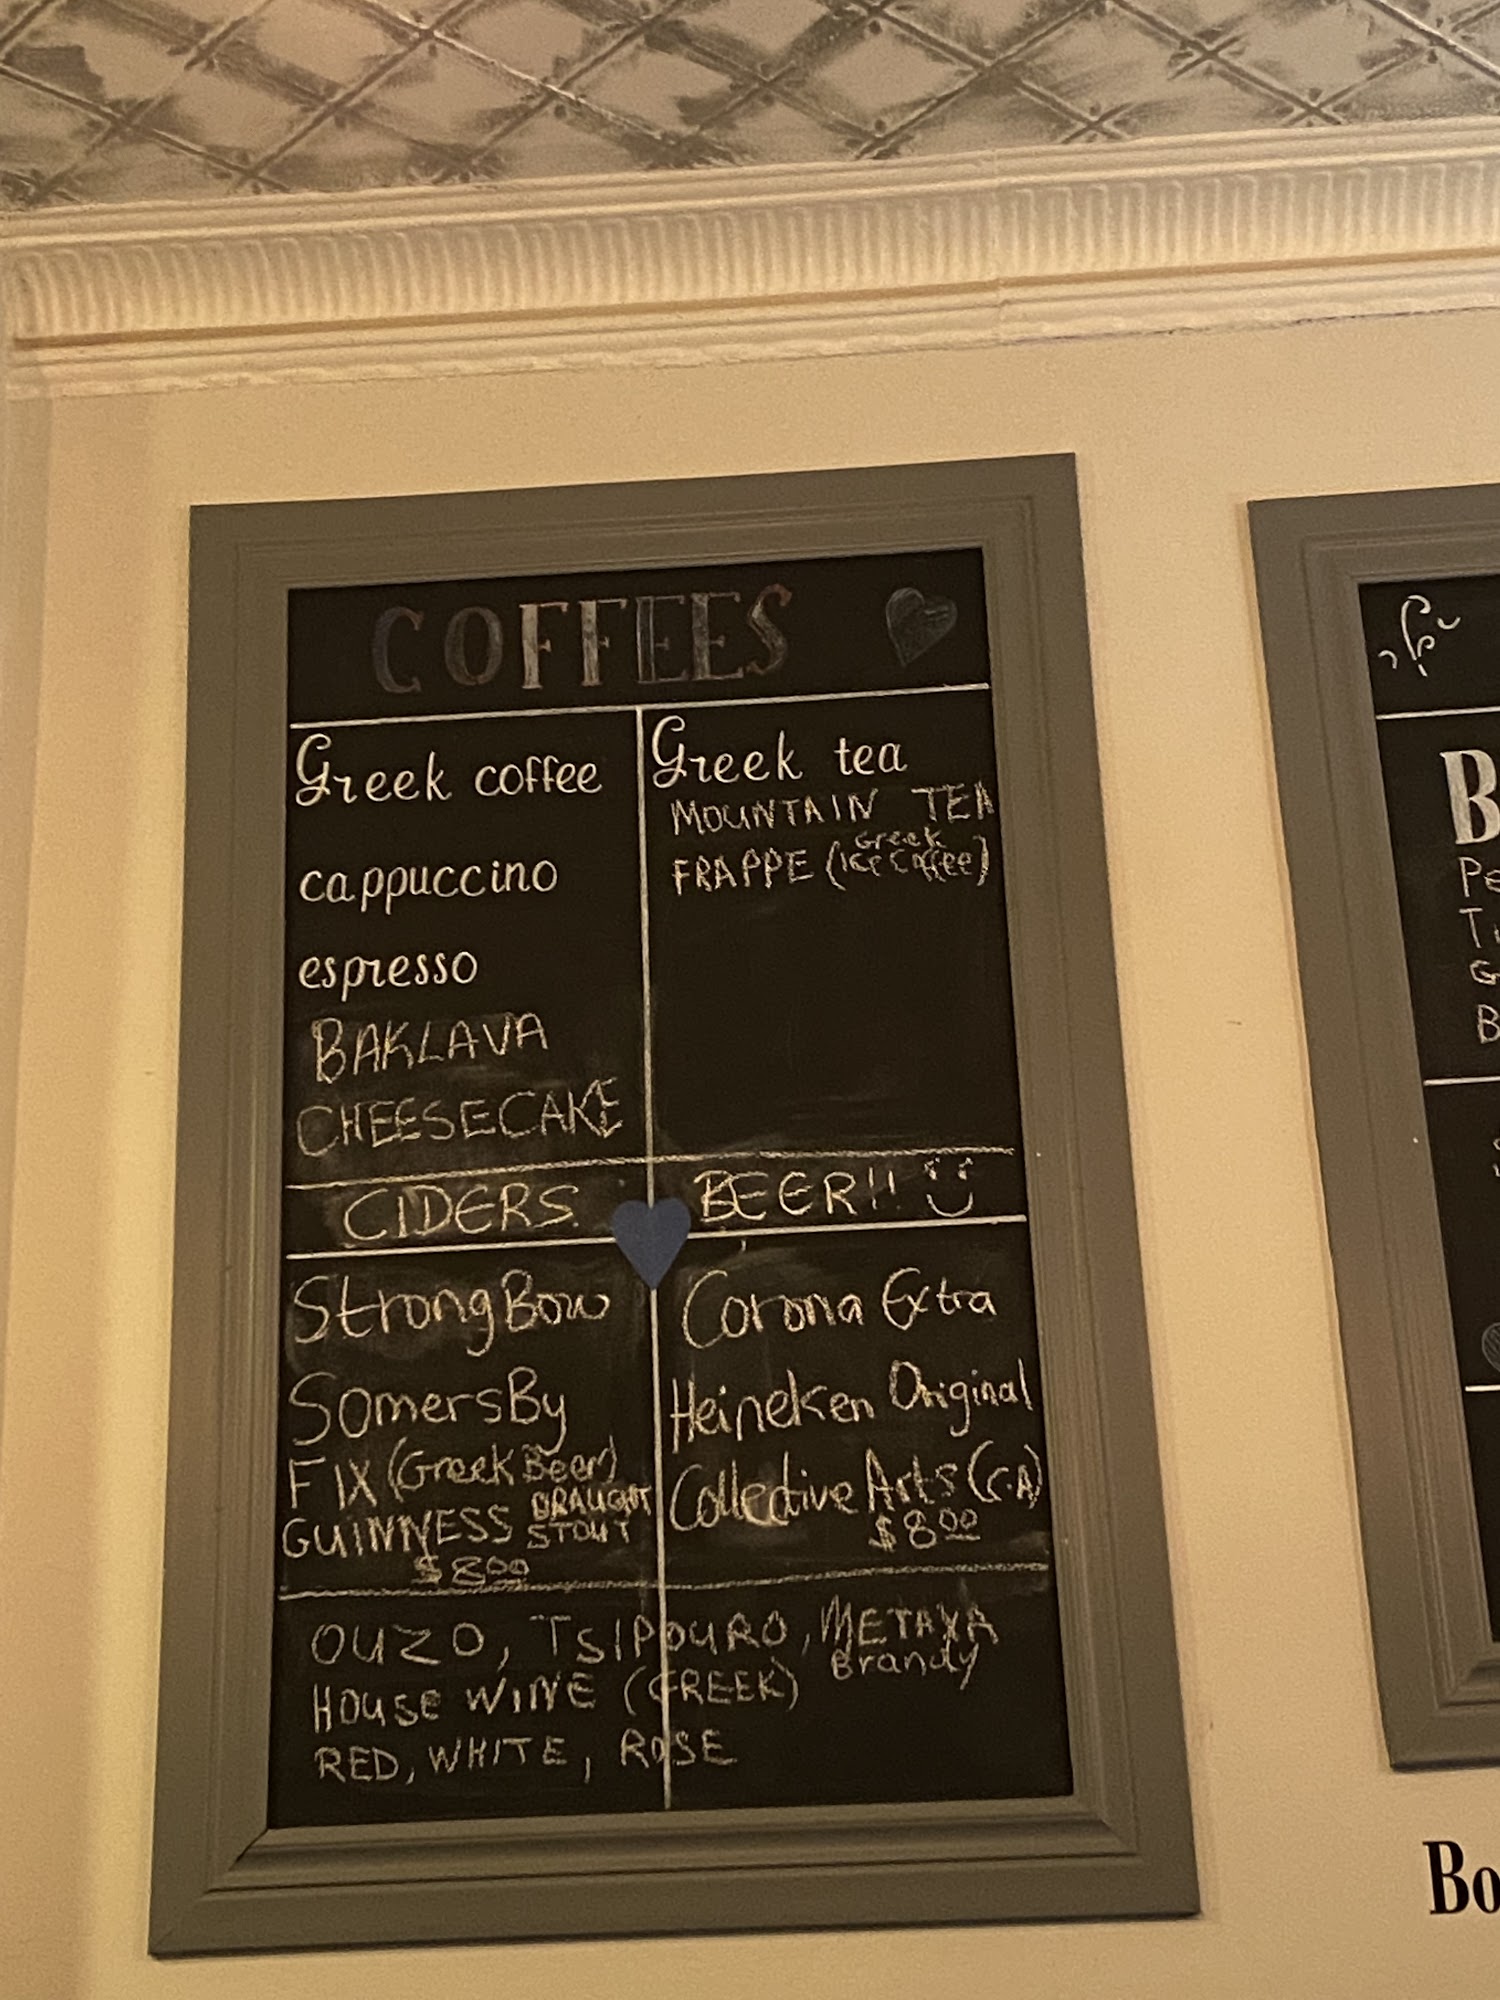 COFFEES
Greek coffee
cappuccino
espresso
BAKLAVA
CHEESECAKE
Greek tea
MOUNTAIN TEA
FRAPPE (Greek Ice Coffee)
CIDERS
StrongBow
SomersBy
FIX (Greek Beer)
GUINNESS DRAUGHT STOUT
$8.00
BEER!!
Corona Extra
Heineken Original
Collective Arts (C.A)
$8.00
OUZO, TSIPOURO, METAXA Brandy
HOUSE WINE (GREEK)
RED, WHITE, ROSE
B
Pe
T
G
B
Bo